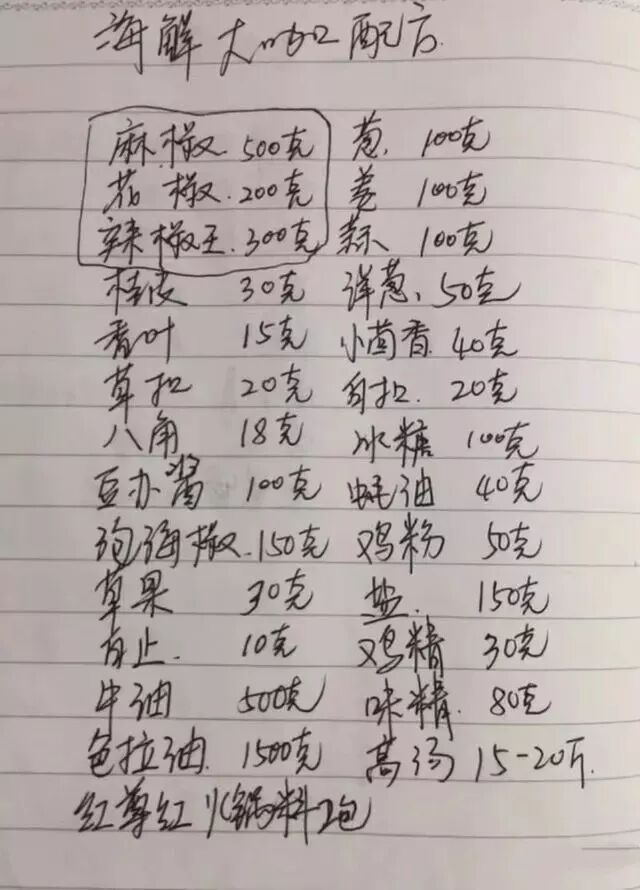 海鲜大咖配方
麻椒 500克 葱 100克
花椒 200克 姜 100克
辣椒王 300克 蒜 100克
桂皮 30克 洋葱 50克
香叶 15克 小茴香 40克
草扣 20克 白扣 20克
八角 18克 冰糖 100克
豆办酱 100克 蚝油 40克
泡海椒 150克 鸡粉 50克
草果 30克 盐 150克
白止 10克 鸡精 30克
牛油 500克 味精 80克
色拉油 1500克 高汤 15-20斤
红尊红火锅料2包